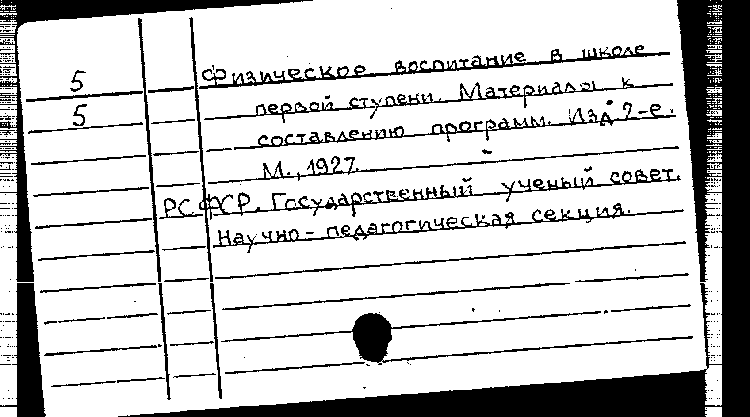 5 Физическое воспитание в школе
5 первой ступени. Материалы к
составлению программ. Изд. 2-е.
М., 1927.
РСФСР. Государственный ученый совет.
Научно-педагогическая секция.